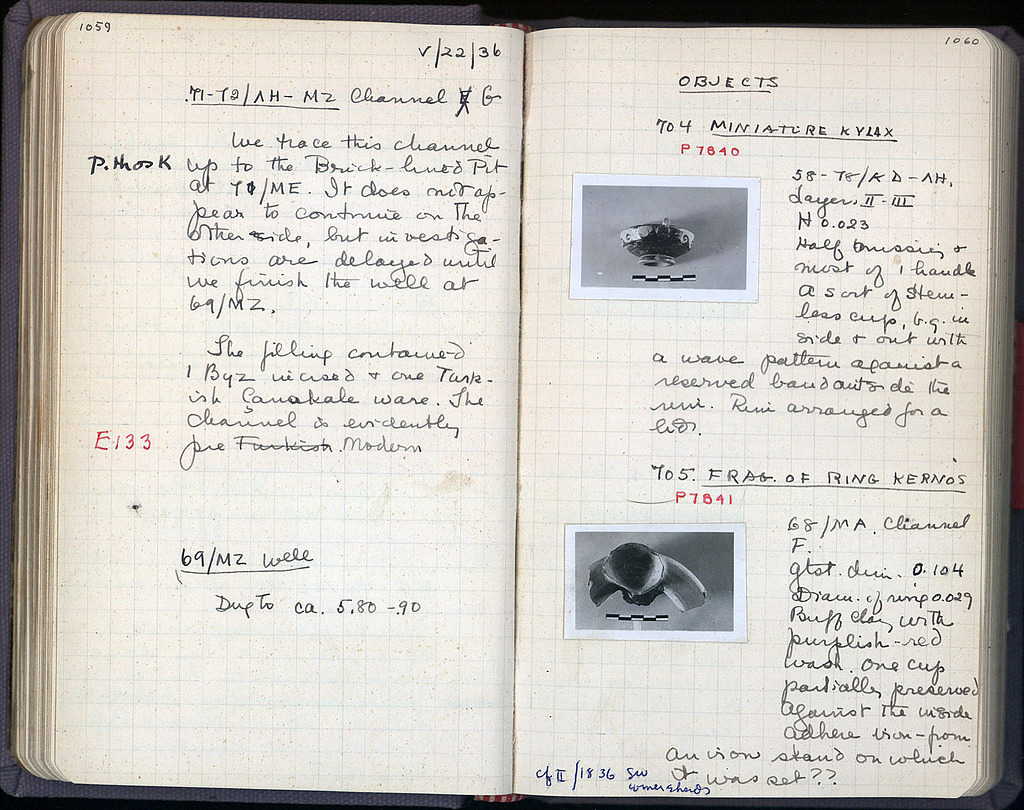 1059
V/22/36
71-72/ΛH-MZ Channel G
We trace this channel
P. Mosk up to the Brick-lined Pit
at 71/ME. It does not ap-
pear to continue on the
other side, but investiga-
tions are delayed until
we finish the well at
69/MZ.
The filling contained
1 Byz incised & one Turk-
ish Çanakale ware. The
channel is evidently
E133 pre Turkish. Modern
69/MZ well
Dug to ca. 5.80-.90
1060
OBJECTS
704 MINIATURE KYLIX
P 7840
58-78/ΛD-ΛH.
Layers II-III
H 0.023
Half missing &
most of 1 handle
A sort of stem-
less cup, b.g. in
side & out with
a wave pattern against a
reserved band outside the
rim. Rim arranged for a
lid.
705. FRAG. OF RING KERNOS
P7841
68/MA. Channel
F.
gtst. dim. 0.104
Diam. of ring 0.029
Buff clay with
purplish-red
wash. One cup
partially preserved
Against the inside
adhere iron-from
an iron stand on which
it was set??
cf II/1836 SW
corner sherds